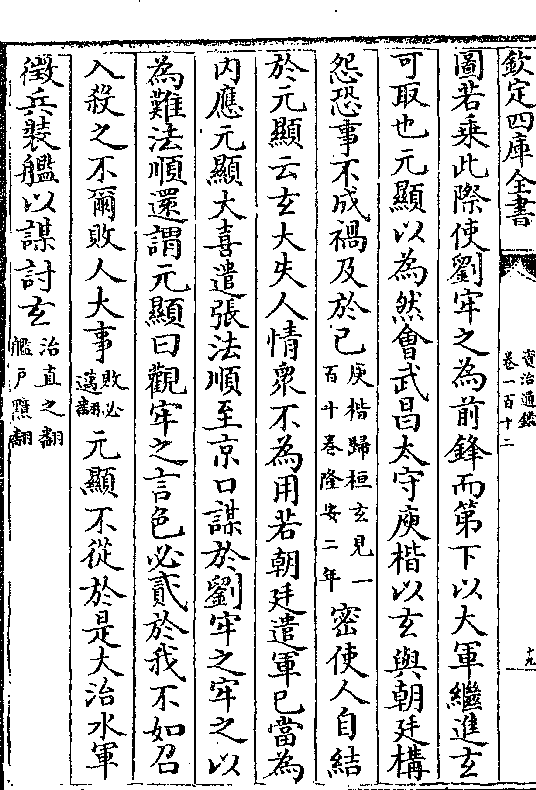 欽定四庫全書
資治通鑑
卷一百十二
十九
圖若乗此際使劉牢之為前鋒而第下以大軍繼進玄
可取也元顯以為然會武昌太守庾楷以玄與朝廷構
怨恐事不成禍及於已庾楷歸桓玄見一百十卷隆安二年密使人自結
於元顯云玄大失人情衆不為用若朝廷遣軍已當為
内應元顯大喜遣張法順至京口謀於劉牢之牢之以
為難法順還謂元顯曰觀牢之言色必貳於我不如召
入殺之不爾敗人大事敗必邁翻元顯不從於是大治水軍
徵兵裝艦以謀討玄治直之翻艦戶黤翻